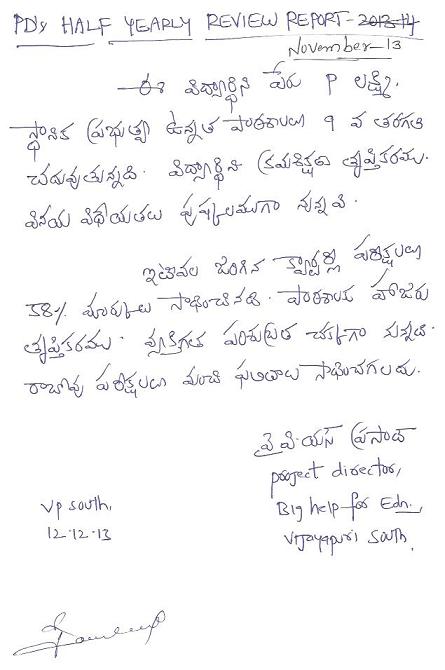 PD's HALF YEARLY REVIEW REPORT-2013-14
November-13
ఈ విద్యార్థిని పేరు P లక్ష్మి.
స్థానిక ప్రభుత్వ ఉన్నత పాఠశాలలు 9 వ తరగతి
చదువుతున్నది. విద్యార్థిని క్రమశిక్షణ తృప్తికరము.
వినయ విధేయతలు పుష్కలముగా నున్నవి.
ఇటీవల జరిగిన క్వార్టర్లీ పరీక్షలలు
58% మార్కులు సాధించినది. పాఠశాల హాజరు
తృప్తికరము. వ్యక్తిగత పరిశుభ్రత చక్కగా నున్నది.
రాబోవు పరీక్షలలు మంచి ఫలితాలు సాధించగలదు.
వై.వి.యస్ ప్రసాద్
project director,
Big help for Edn.,
Vijayapuri South.
VP South,
12-12-13